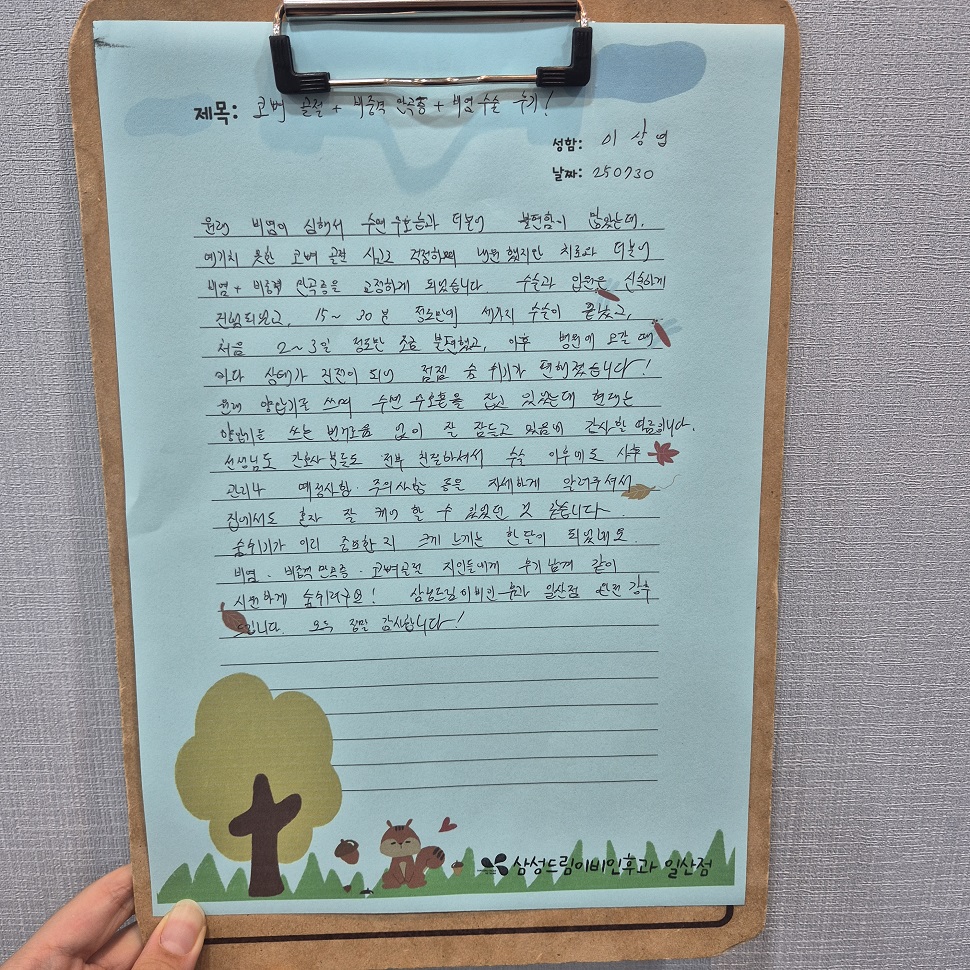 제목: 코뼈 골절 + 비중격 만곡증 + 비염 수술 후기!
성함: 이상엽
날짜: 250730
원래 비염이 심해서 수면 무호흡과 더불어 불편함이 많았는데,
예기치 못한 코뼈 골절 사고로 걱정하며 내원했지만 치료와 더불어
비염 + 비중격 만곡증을 교정하게 되었습니다. 수술과 입원은 신속하게
진행되었고, 15~30분 정도만에 세가지 수술이 끝났고,
처음 2~3일 정도만 조금 불편했고, 이후 병원에 오갈 때
마다 상태가 진전이 되어 점점 숨 쉬기가 편해졌습니다!
원래 양압기를 쓰며 수면 무호흡을 잡고 있었는데 현재는
양압기를 쓰는 번거로움 없이 잘 잠들고 있음에 감사할 따름입니다.
선생님도 간호사분들도 전부 친절하셔서 수술 이후에도 사후
관리나 예정사항·주의사항 등을 자세하게 알려주셔서
집에서도 혼자 잘 케어 할 수 있었던 것 같습니다.
숨쉬기가 이리 중요한지 크게 느끼는 한달이 되었네요.
비염·비중격만곡증·코뼈골절 지인들에게 후기 남겨 같이
시원하게 숨쉬려구요! 삼성드림이비인후과 일산점 완전 강추
드립니다. 모두 정말 감사합니다!
삼성드림이비인후과 일산점